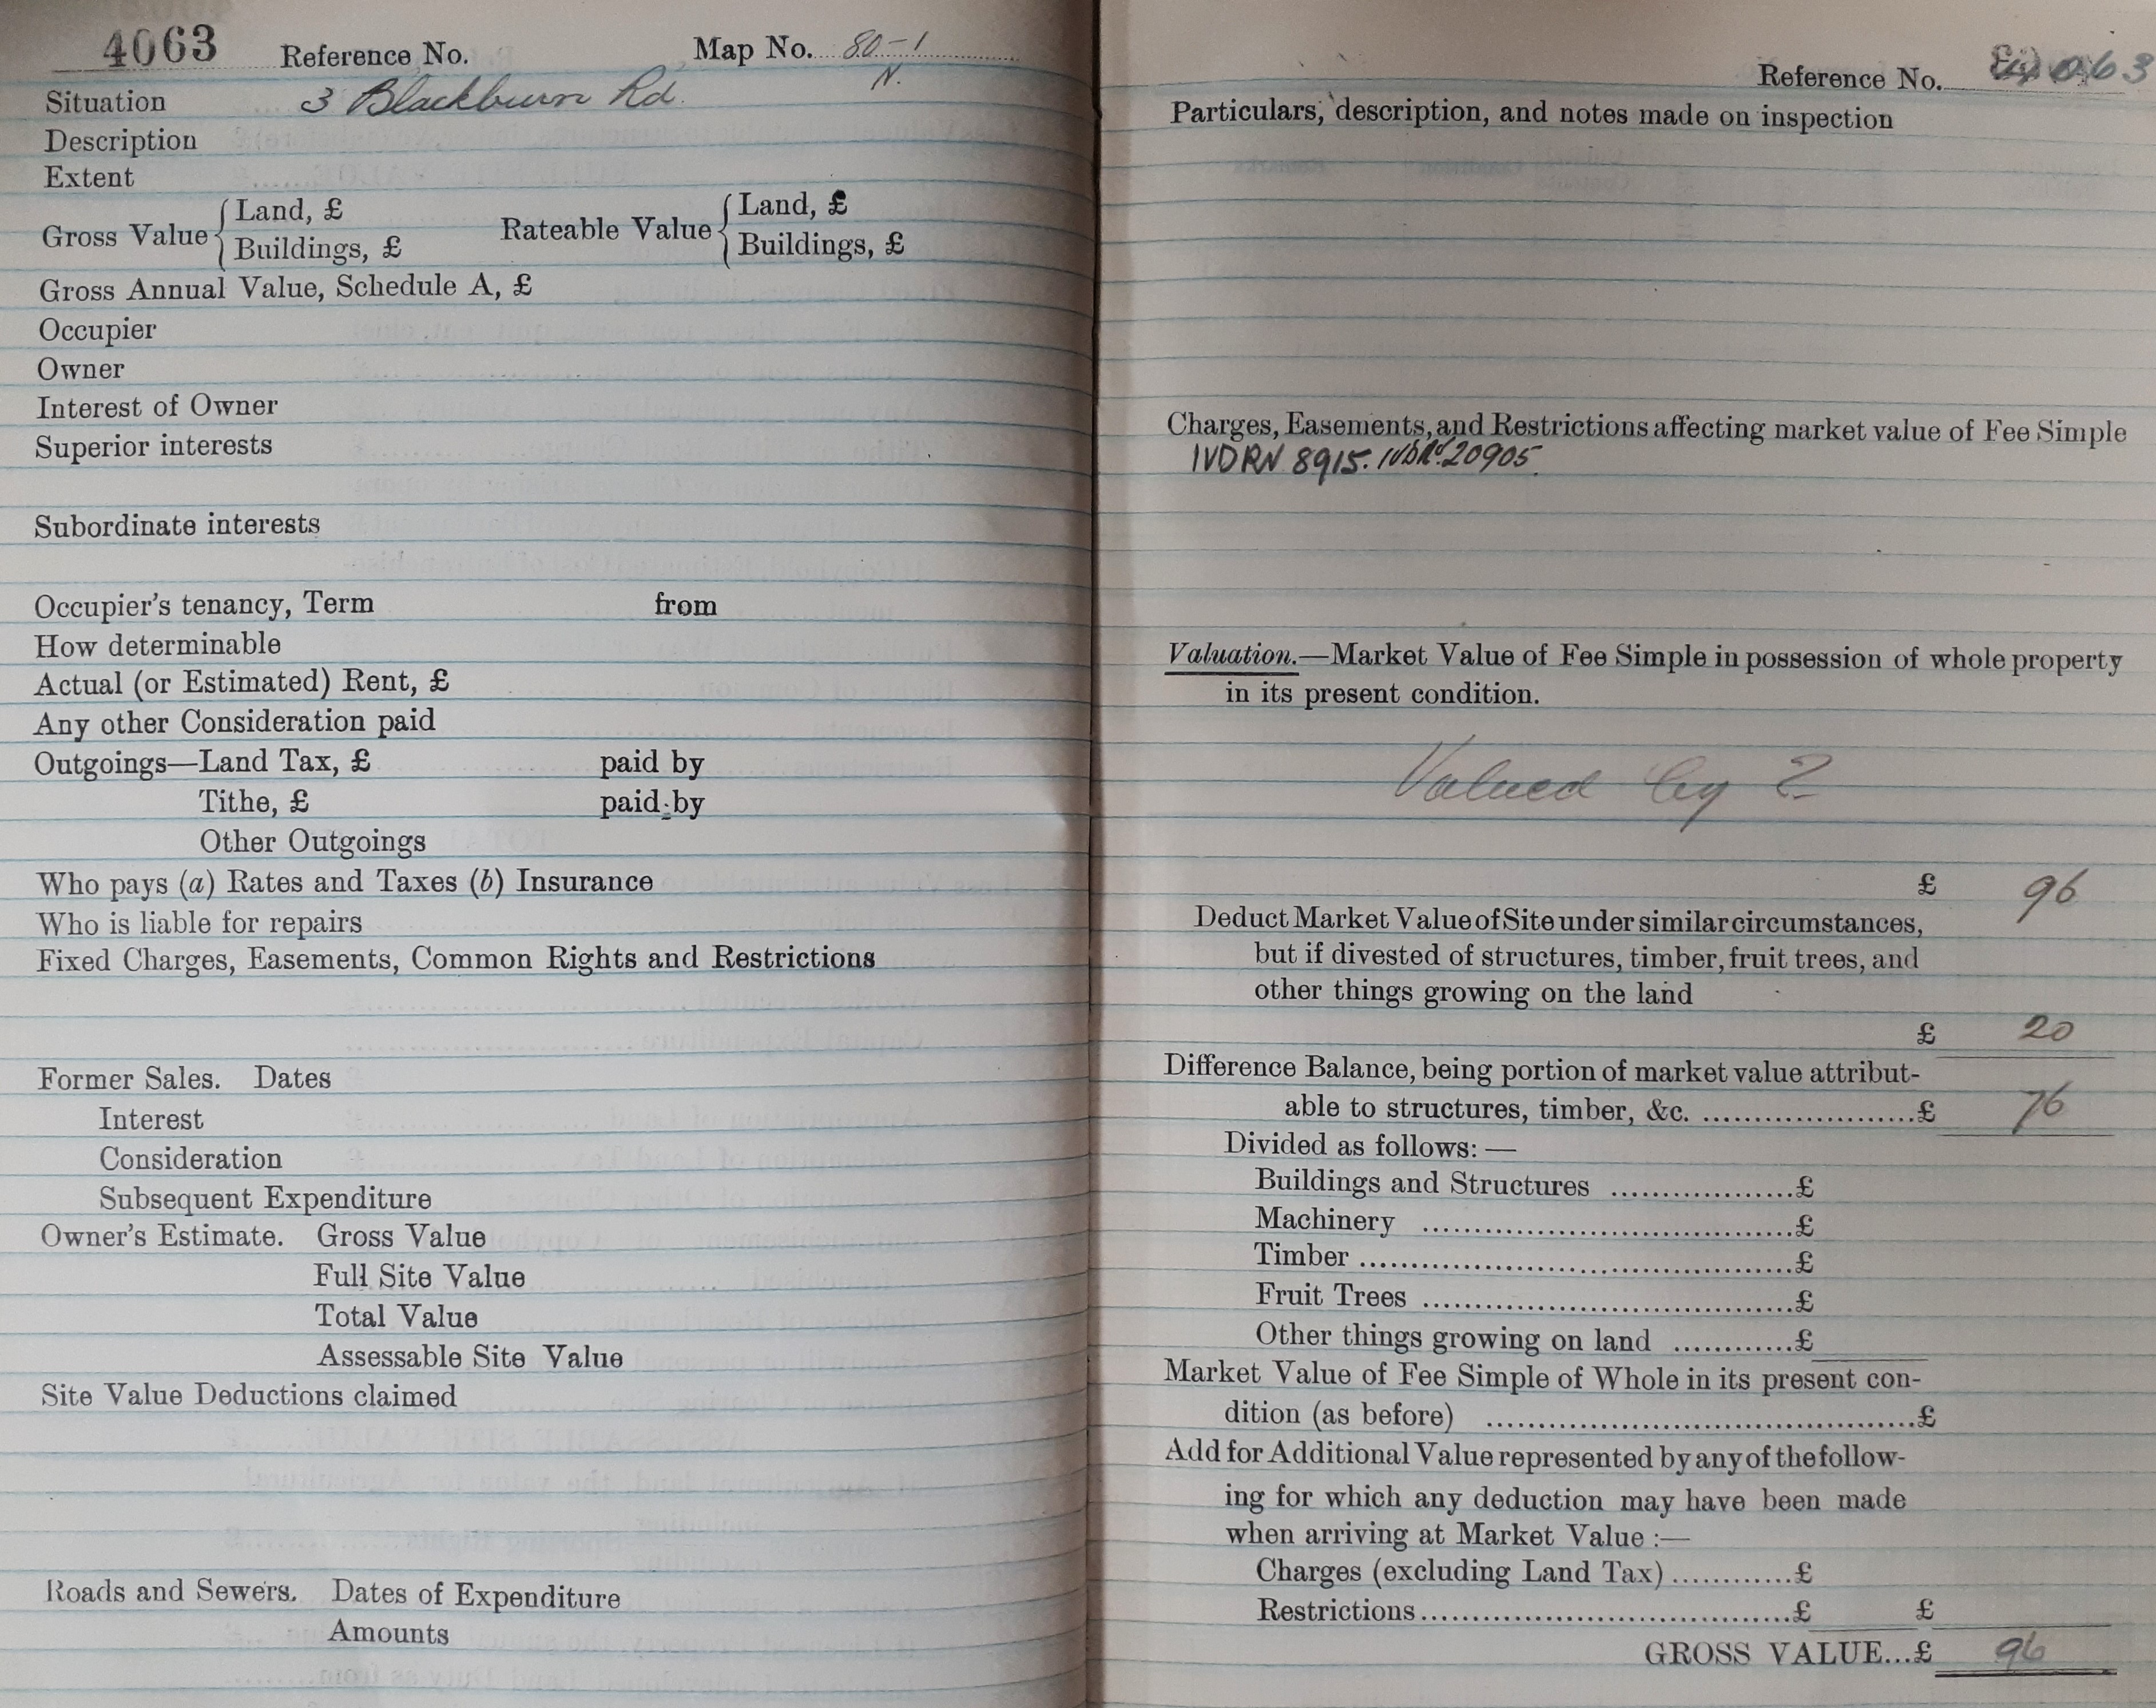 4063 Reference No. Map No. 80-1
N.
Situation 3 Blackburn Rd.
Description
Extent
Gross Value { Land, £ Rateable Value { Land, £
Buildings, £ Buildings, £
Gross Annual Value, Schedule A, £
Occupier
Owner
Interest of Owner
Superior interests
Subordinate interests
Occupier's tenancy, Term from
How determinable
Actual (or Estimated) Rent, £
Any other Consideration paid
Outgoings—Land Tax, £ paid by
Tithe, £ paid by
Other Outgoings
Who pays (a) Rates and Taxes (b) Insurance
Who is liable for repairs
Fixed Charges, Easements, Common Rights and Restrictions
Former Sales. Dates
Interest
Consideration
Subsequent Expenditure
Owner's Estimate. Gross Value
Full Site Value
Total Value
Assessable Site Value
Site Value Deductions claimed
Roads and Sewers. Dates of Expenditure
Amounts
Reference No.
Particulars, description, and notes made on inspection
Charges, Easements, and Restrictions affecting market value of Fee Simple
IVDRN 8915. 20905.
Valuation.—Market Value of Fee Simple in possession of whole property
in its present condition.
Valued by 2
£ 96
Deduct Market Value of Site under similar circumstances,
but if divested of structures, timber, fruit trees, and
other things growing on the land
£ 20
Difference Balance, being portion of market value attribut-
able to structures, timber, &c. ....................£ 76
Divided as follows:—
Buildings and Structures ..................£
Machinery .....................................£
Timber ...........................................£
Fruit Trees .....................................£
Other things growing on land ............£
Market Value of Fee Simple of Whole in its present con-
dition (as before) ..........................................£
Add for Additional Value represented by any of the follow-
ing for which any deduction may have been made
when arriving at Market Value :—
Charges (excluding Land Tax) ............£
Restrictions.....................................£ £
GROSS VALUE...£ 96